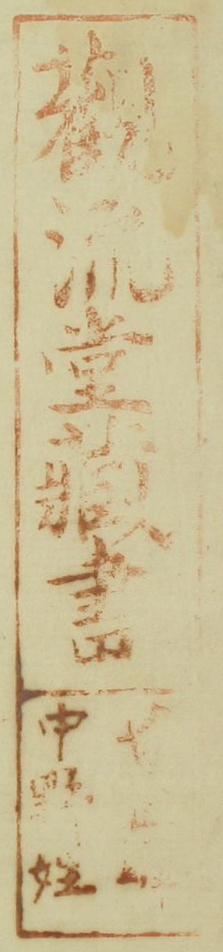 觀流堂藏書
中野姓